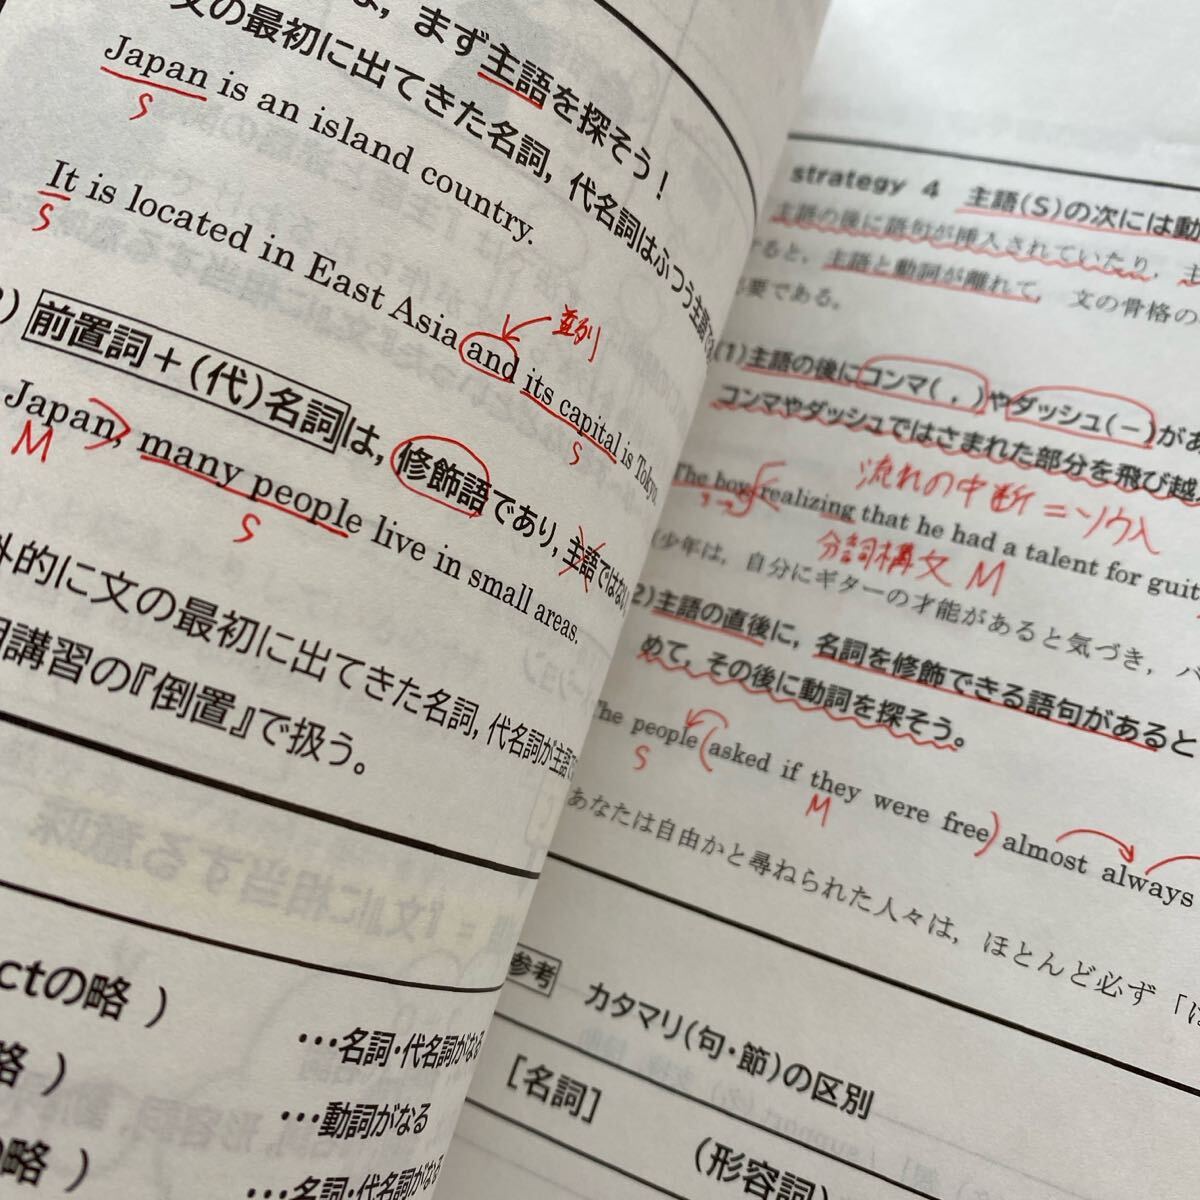 は, まず主語を探そう！
文の最初に出てきた名詞, 代名詞はふつう主語
Japan is an island country.
S
It is located in East Asia and its capital is Tokyo.
S
並列
S
前置詞＋(代)名詞は, 修飾語であり, 主語ではない
Japan, many people live in small areas.
M
S
外的に文の最初に出てきた名詞, 代名詞が主語で
講習の『倒置』で扱う。
ctの略 )
…名詞・代名詞がなる
略 )
…動詞がなる
の略 )
…名詞・代名詞がなる
strategy 4 主語(S)の次には動
主語の後に語句が挿入されていたり, 主
すると, 主語と動詞が離れて, 文の骨格の
要である。
(1)主語の後にコンマ( , )やダッシュ(－)があ
コンマやダッシュではさまれた部分を飛び越
流れの中断＝ソウ入
The boy, realizing that he had a talent for guit
分詞構文 M
(少年は, 自分にギターの才能があると気づき, バ
2)主語の直後に, 名詞を修飾できる語句があると
めて, その後に動詞を探そう。
The people asked if they were free almost always
S
M
あなたは自由かと尋ねられた人々は, ほとんど必ず「は
参考 カタマリ(句・節)の区別
[名詞]
(形容詞)